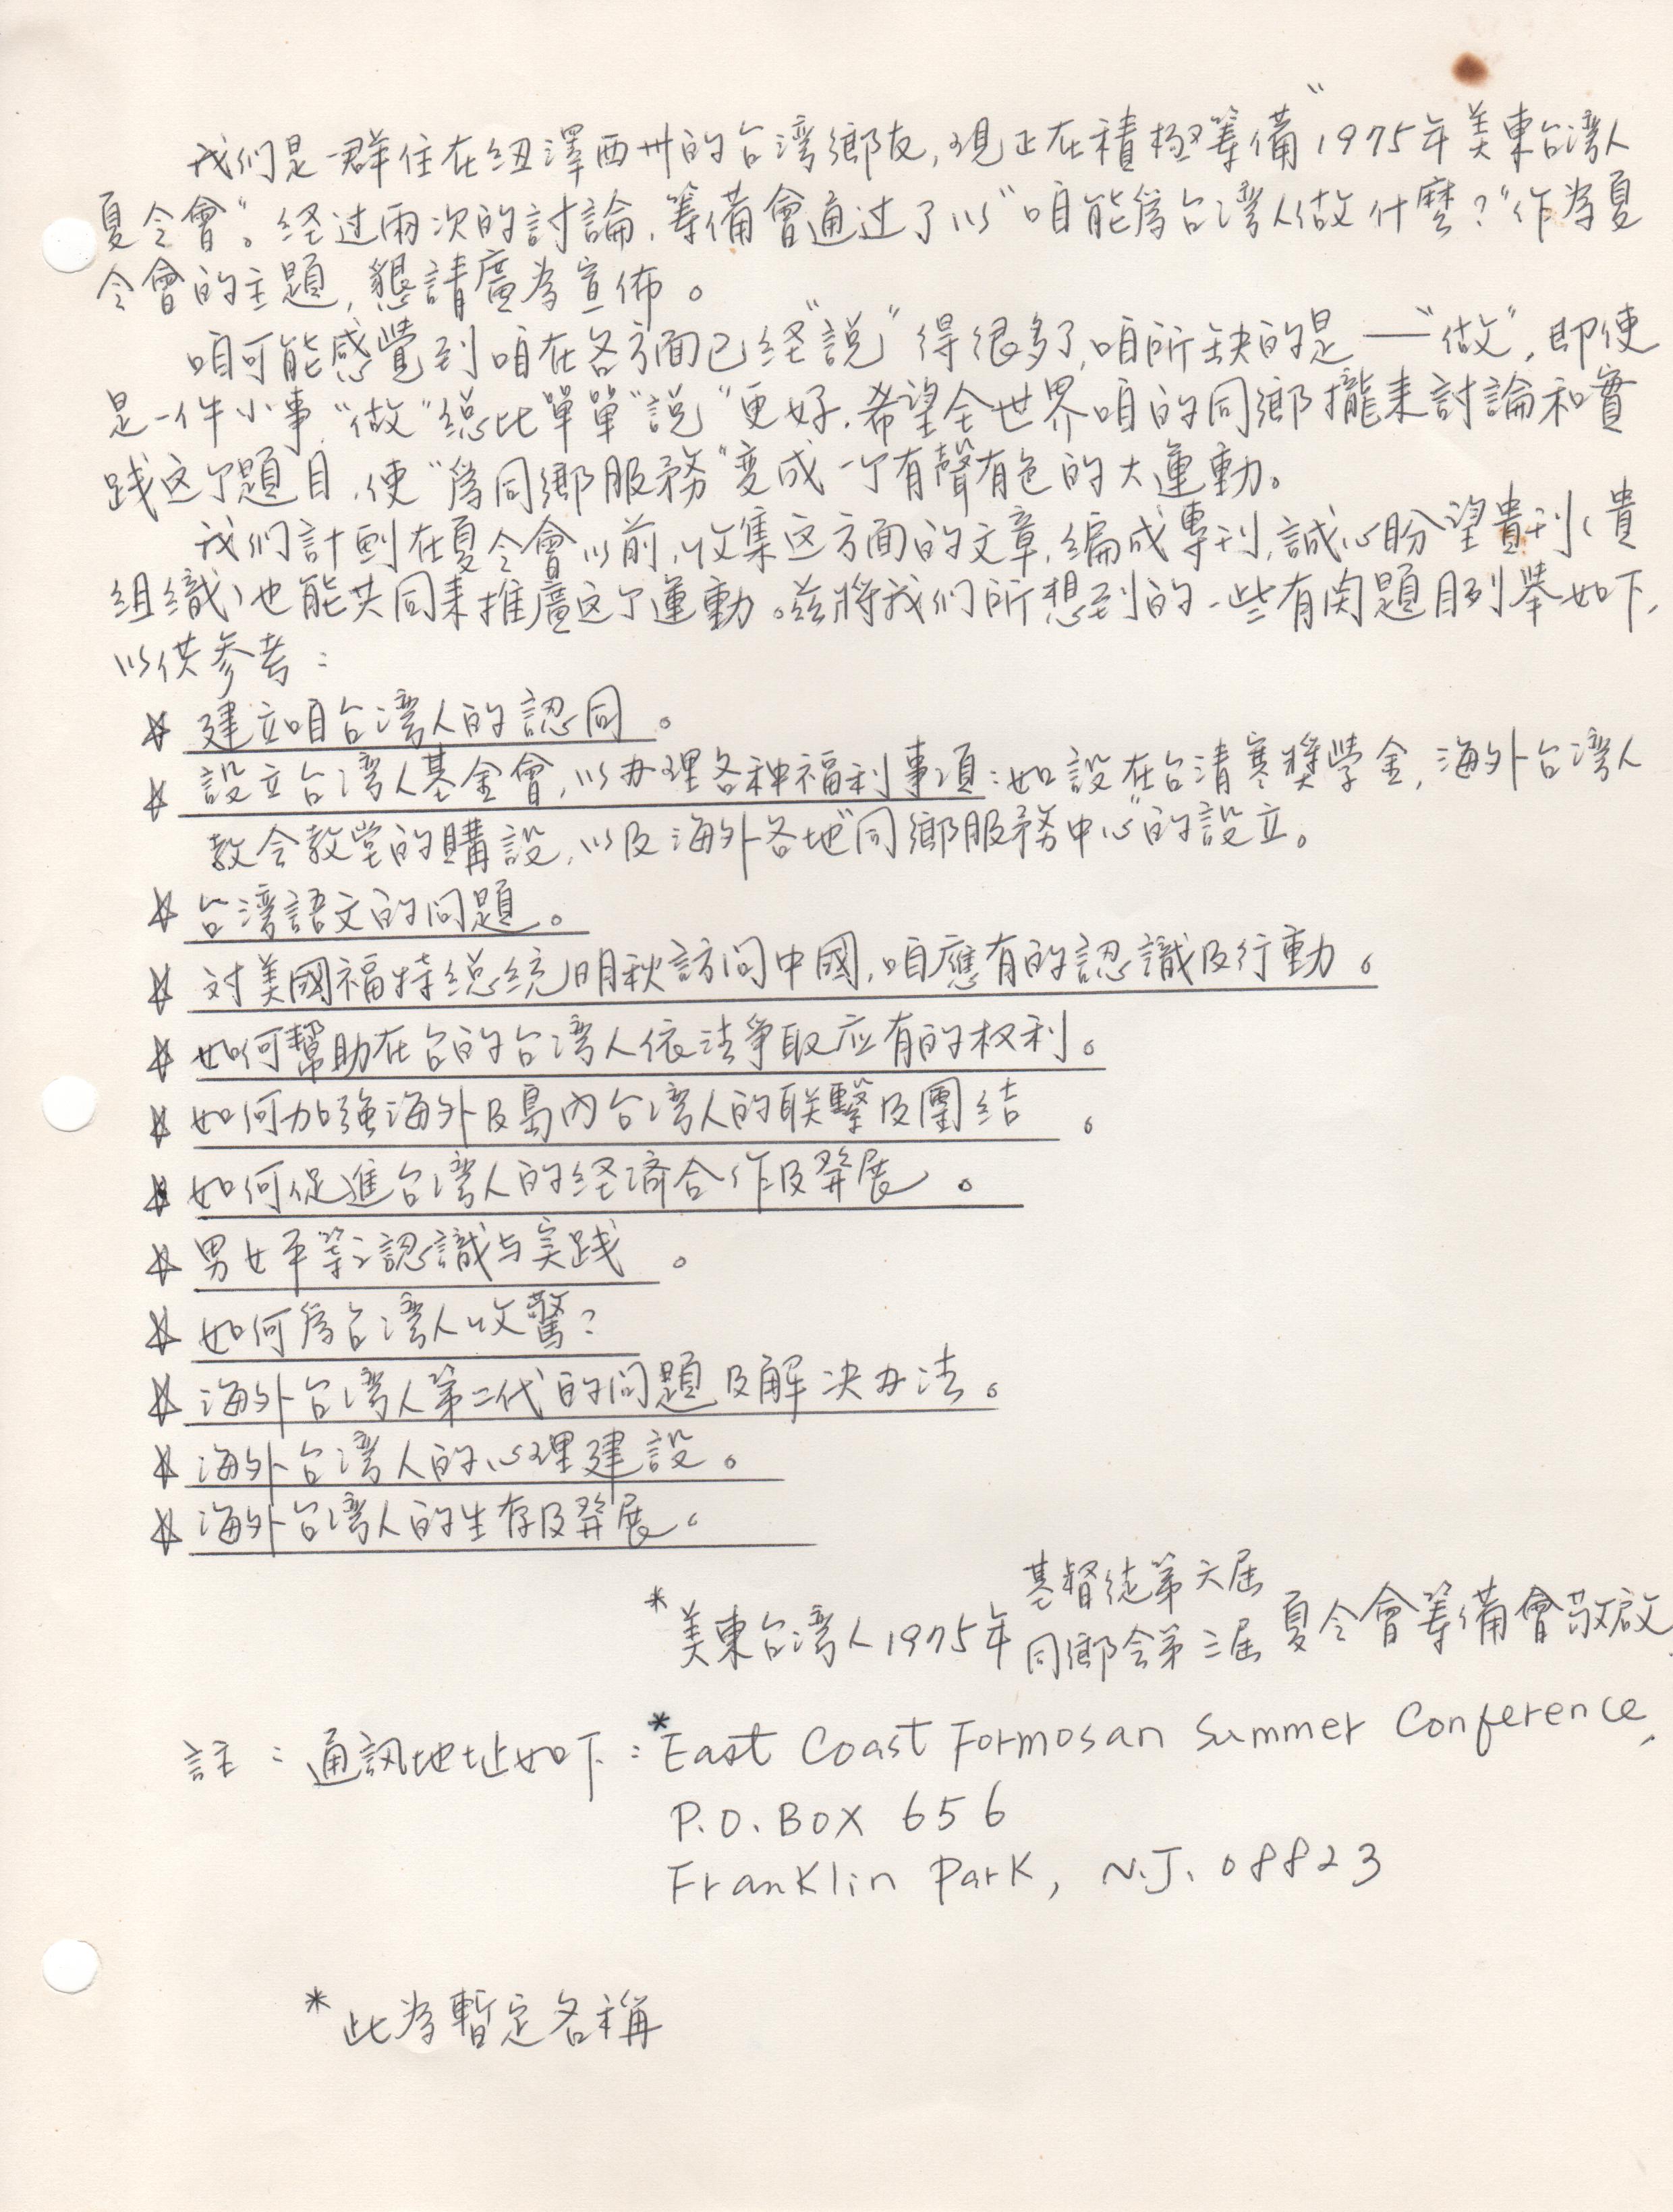 我们是一群住在纽澤西卅的台湾鄉友,現正在積極筹備"1975年美東台湾人
夏令會"。経过兩次的討論,筹備會通过了以"咱能為台湾人做什麽?"作為夏
令會的主題,懇請廣為宣佈。
咱可能感覺到咱在各方面已经"説"得很多了,咱所缺的是——"做",即使
是一件小事"做"総比單單"説"更好.希望全世界咱的同鄉攏来討論和實
践这个題目,使"為同鄉服務"变成一个有聲有色的大運動。
我们計劃在夏令會以前,收集这方面的文章,編成專刊,誠心盼望貴刊(貴
组織)也能共同来推廣这个運動。兹將我们所想到的一些有関題目列举如下,
以供参考:
☆ 建立咱台湾人的認同。
☆ 設立台湾人基金會,以办理各种福利事項:如設在台清寒奬學金,海外台湾人
教会教堂的購設,以及海外各地"同鄉服務中心"的設立。
☆ 台湾語文的问題。
☆ 对美國福特総統明秋訪问中國,咱應有的認識及行動。
☆ 如何幫助在台的台湾人依法争取应有的权利。
☆ 如何加強海外及島内台湾人的联繫及團結。
☆ 如何促進台湾人的経済合作及発展。
☆ 男女平等之認識与実践。
☆ 如何為台湾人收驚?
☆ 海外台湾人第二代的问題及解决办法。
☆ 海外台湾人的心理建設。
☆ 海外台湾人的生存及発展。
基督徒第六屆
*美東台湾人1975年 同鄉会第三屆 夏令會筹備會敬啟
註:通訊地址如下:*East Coast Formosan Summer Conference,
P.O. Box 656
Franklin Park, N.J. 08823
*此為暫定名稱